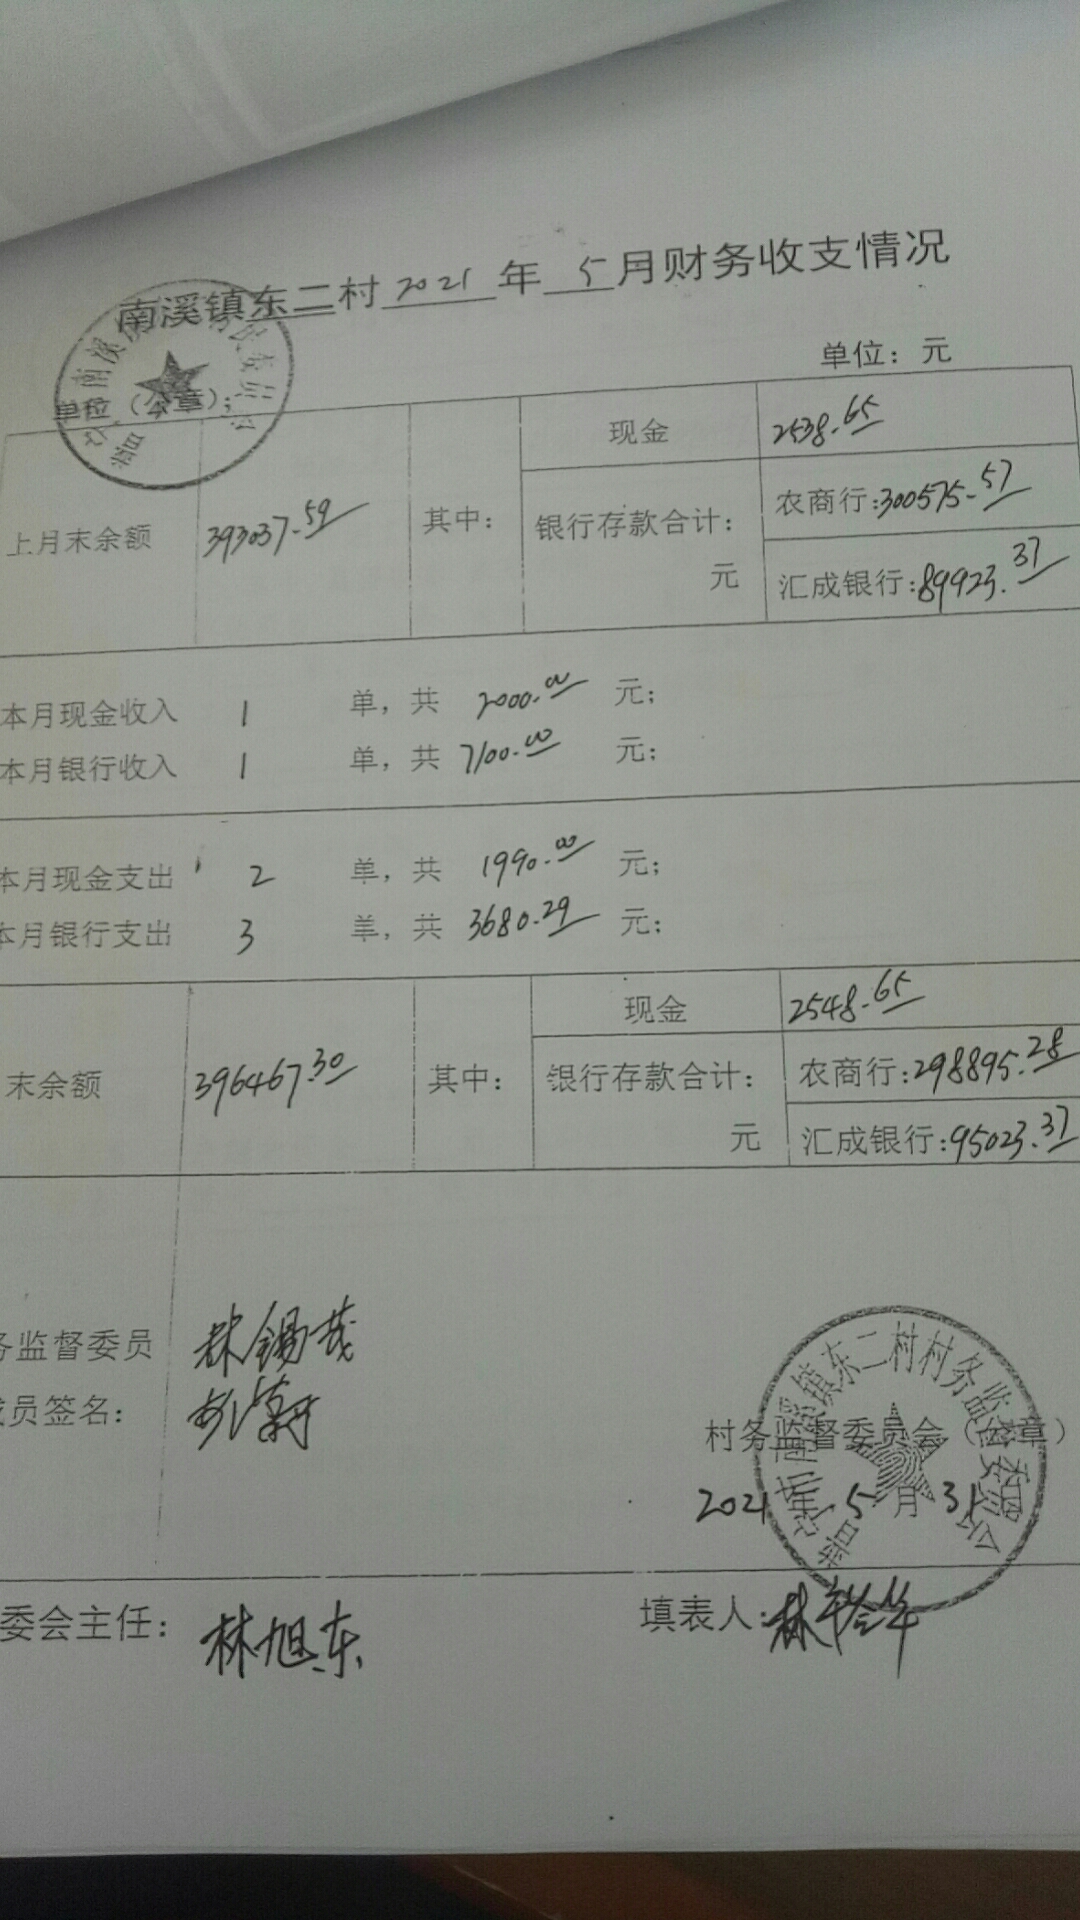 南溪镇东二村2021年5月财务收支情况
单位（公章）：
单位：元
上月末余额 393037.59 其中： 现金 2538.65
银行存款合计： 元 农商行：300575.57
汇成银行：89923.37
本月现金收入 1 单，共 2000.00 元；
本月银行收入 1 单，共 7100.00 元；
本月现金支出 2 单，共 1990.00 元；
本月银行支出 3 单，共 3680.29 元；
末余额 396467.30 其中： 现金 2548.65
银行存款合计： 元 农商行：298895.28
汇成银行：95023.37
务监督委员 林锡茂
成员签名：
南溪镇东二村村务监督委员会
村务监督委员会（公章）
2021年5月31
委会主任：林旭东
填表人：林